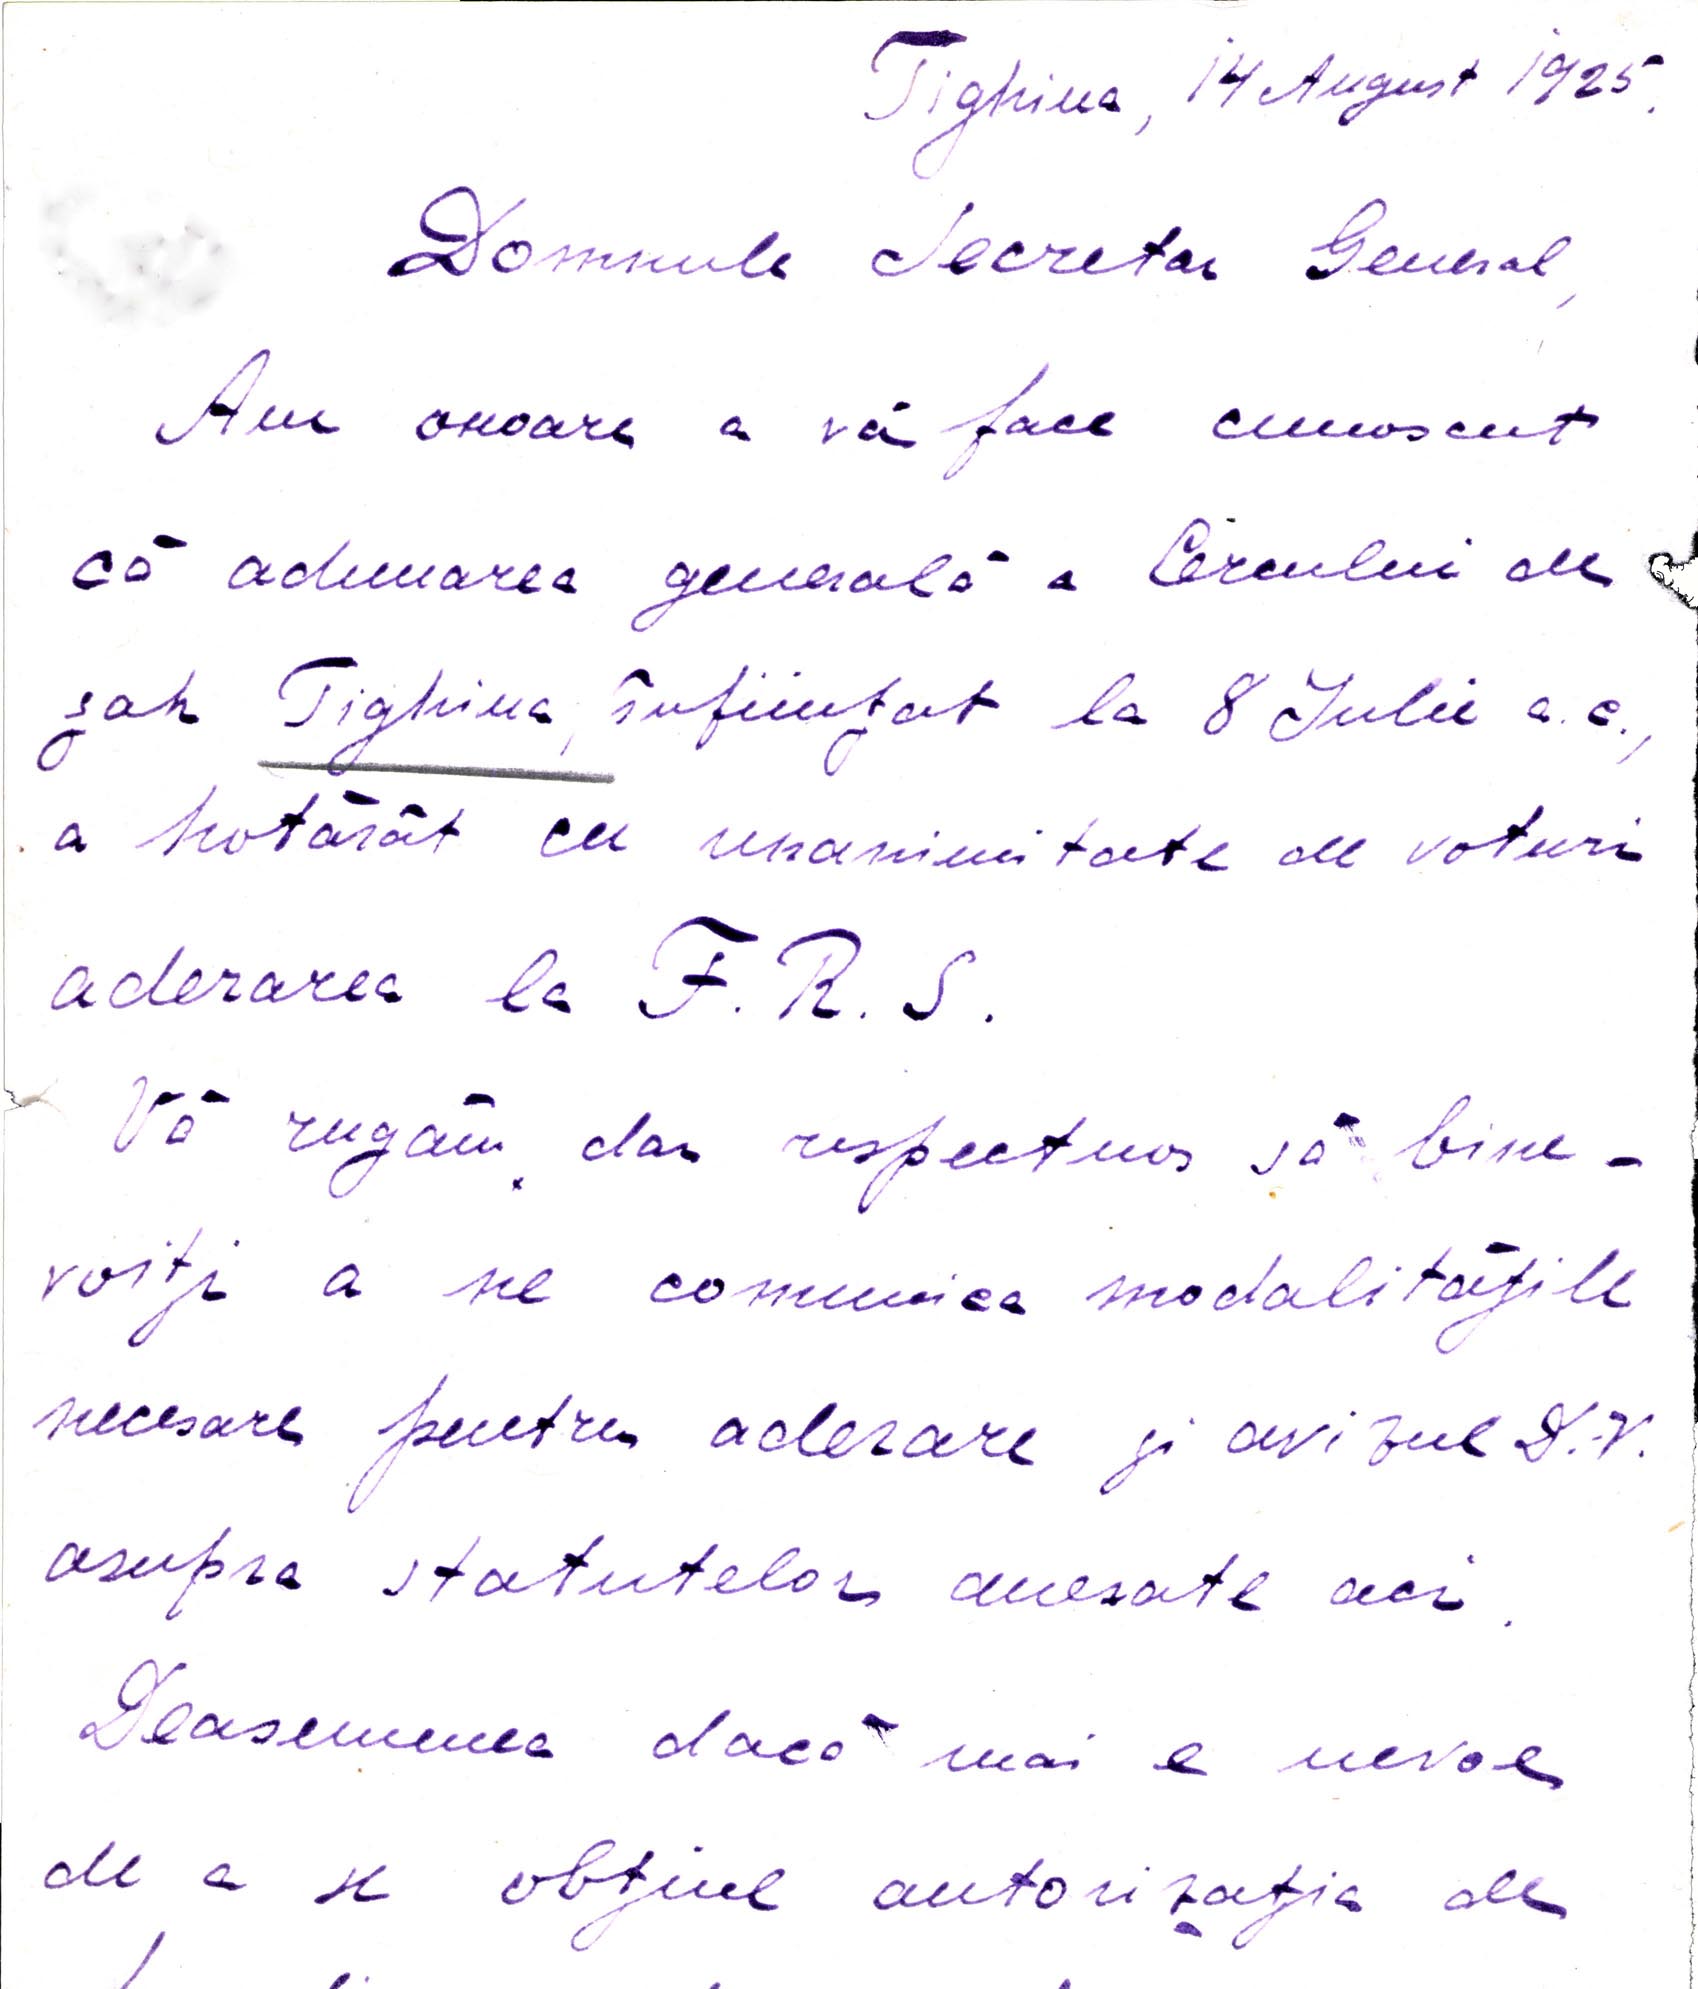 Tighina, 14 August 1925.
Domnule Secretar General,
Am onoare a vă face cunoscut
că adunarea generală a Cercului de
șah Tighina, înființat la 8 Iulie a.c.,
a hotărât cu unanimitate de voturi
aderarea la F.R.S.
Vă rugăm, dar respectuos să bine-
voiți a ne comunica modalitățile
necesare pentru aderare și avizul D.-V.
asupra statutelor anexate aci.
Deasemenea dacă mai e nevoe
de a se obține autorizația de